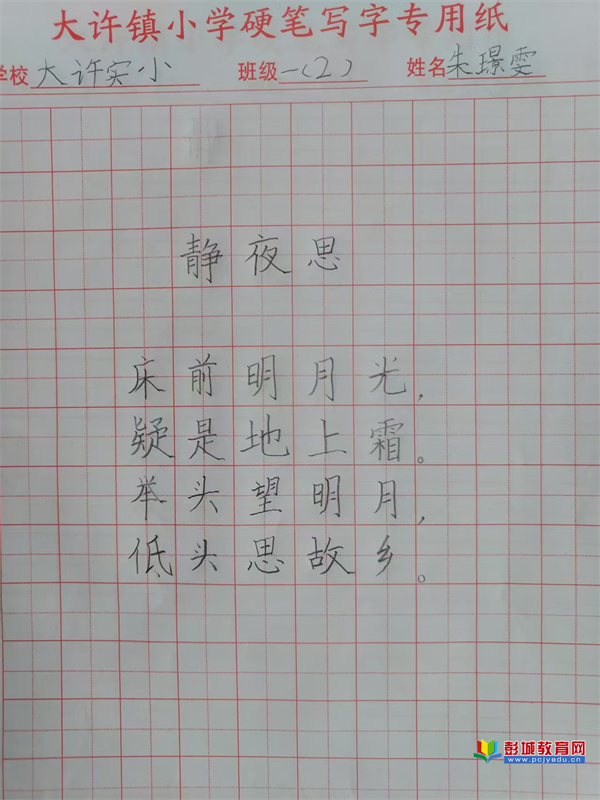 大许镇小学硬笔写字专用纸
学校 大许实小 班级 一(2) 姓名 朱璟雯
静夜思
床前明月光，
疑是地上霜。
举头望明月，
低头思故乡。
彭城教育网
www.pcjyedu.cn